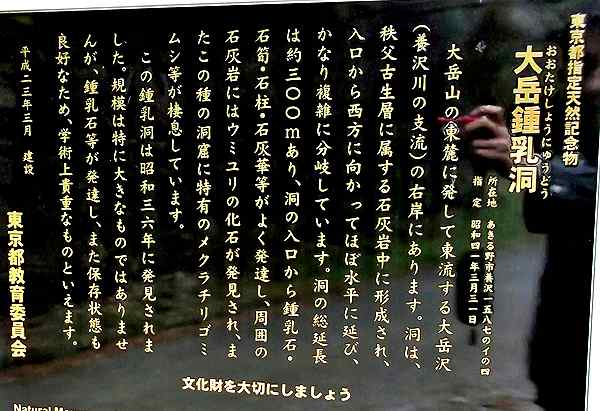 東京都指定天然記念物
おおたけしょうにゅうどう
大岳鍾乳洞
所在地 あきる野市養沢一五八七のイの四
指定 昭和四一年三月三一日
大岳山の東麓に発して東流する大岳沢
(養沢川の支流)の右岸にあります。洞は、
秩父古生層に属する石灰岩中に形成され、
入口から西方に向かってほぼ水平に延び、
かなり複雑に分岐しています。洞の総延長
は約三〇〇mあり、洞の入口から鍾乳石・
石筍・石柱・石灰華等がよく発達し、周囲の
石灰岩にはウミユリの化石が発見され、ま
たこの種の洞窟に特有のメクラチリゴミ
ムシ等が棲息しています。
この鍾乳洞は昭和三六年に発見されま
した。規模は特に大きなものではありませ
んが、鍾乳石等が発達し、また保存状態も
良好なため、学術上貴重なものといえます。
平成二三年三月 建設
東京都教育委員会
文化財を大切にしましょう
Natural